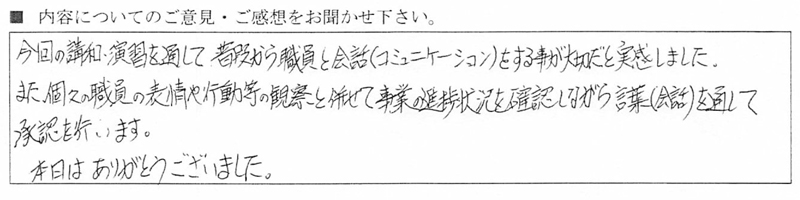 ■ 内容についてのご意見・ご感想をお聞かせ下さい。
今回の講和・演習を通して普段から職員と会話(コミュニケーション)をする事が大切だと実感しました。
また、個々の職員の表情や行動等の観察と併せて事業の進捗状況を確認しながら言葉(会話)を通して
承認を行います。
本日はありがとうございました。